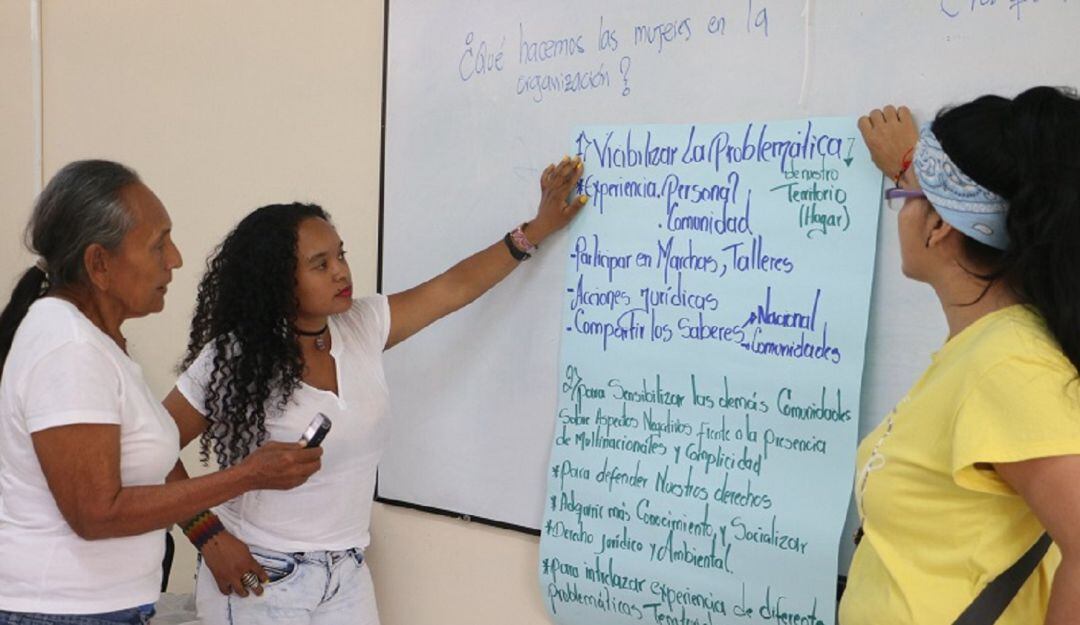 ¿Qué hacemos las mujeres en la
organización?
1) Vicibilizar La Problemática
de nuestro
Territorio
(Hogar)
*Experiencia. Personal
. Comunidad
-Participar en Marchas, Talleres
-Acciones Jurídicas
-Compartir los Saberes Nacional
Comunidades
2) para Sensibilizar las demás Comunidades
Sobre Aspectos Negativos Frente a la Presencia
de Multinacionales y Complicidad
*para defender Nuestros derechos
*Adquirir más Conocimiento, y Socializar
*Derecho jurídico y Ambiental.
*para intrelazar experiencia de diferente
problemáticas